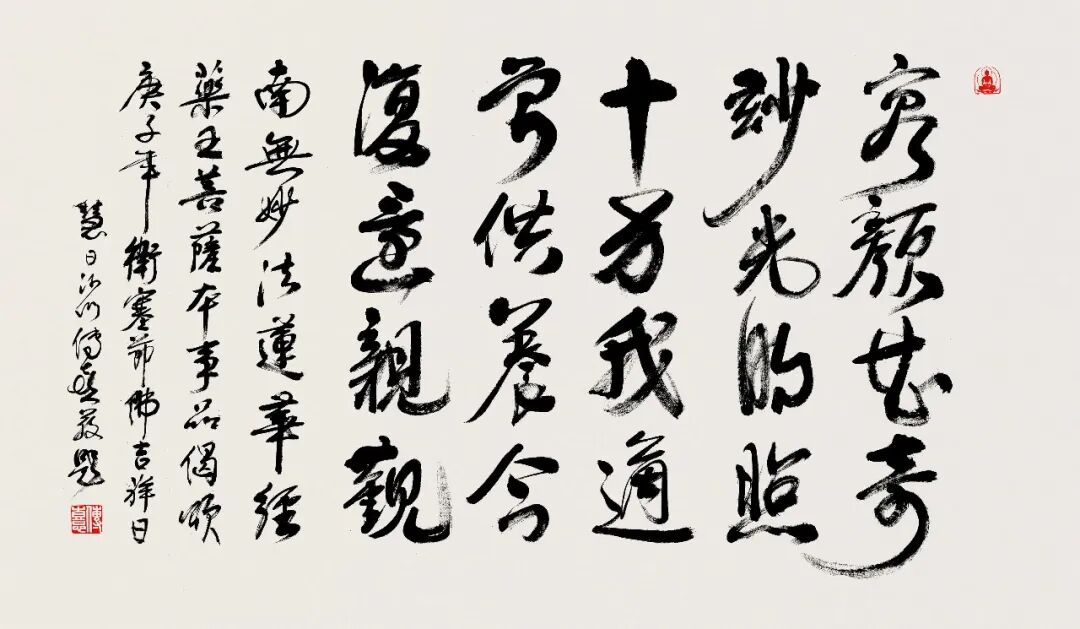 容顏甚奇
玅光明照
十方我適
曾供養今
復還親覲
南無妙法蓮華經
藥王菩薩本事品偈頌
庚子年衛塞節佛吉祥日
慧日沙門傳喜敬題
傳喜